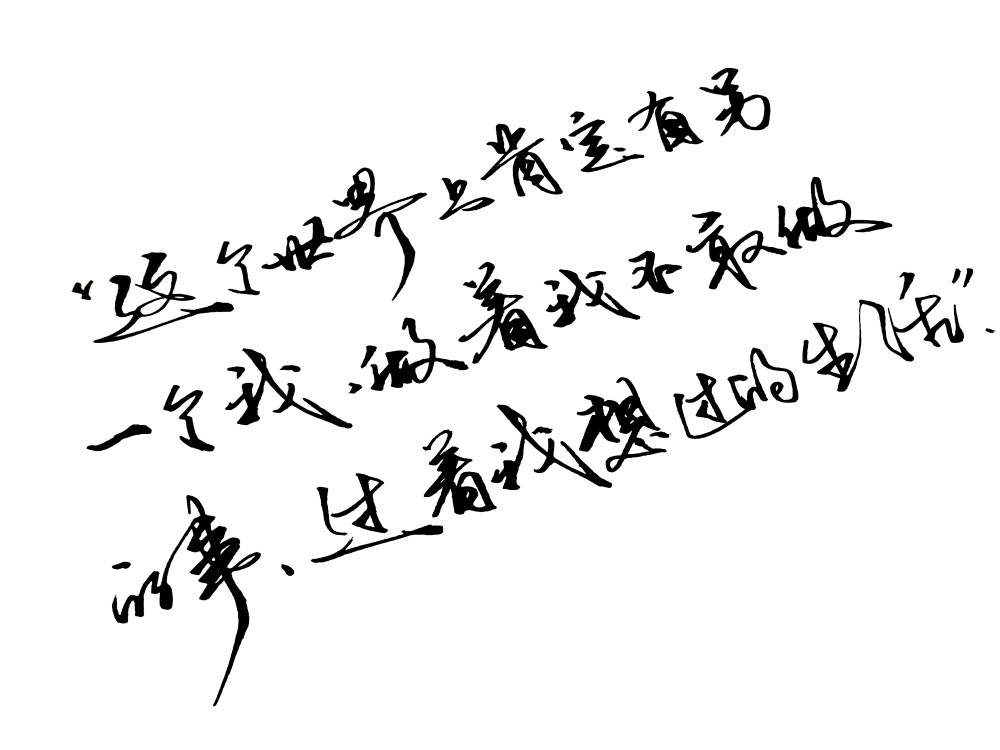 “这个世界上肯定有另
一个我,做着我不敢做
的事、过着我想过的生活”.